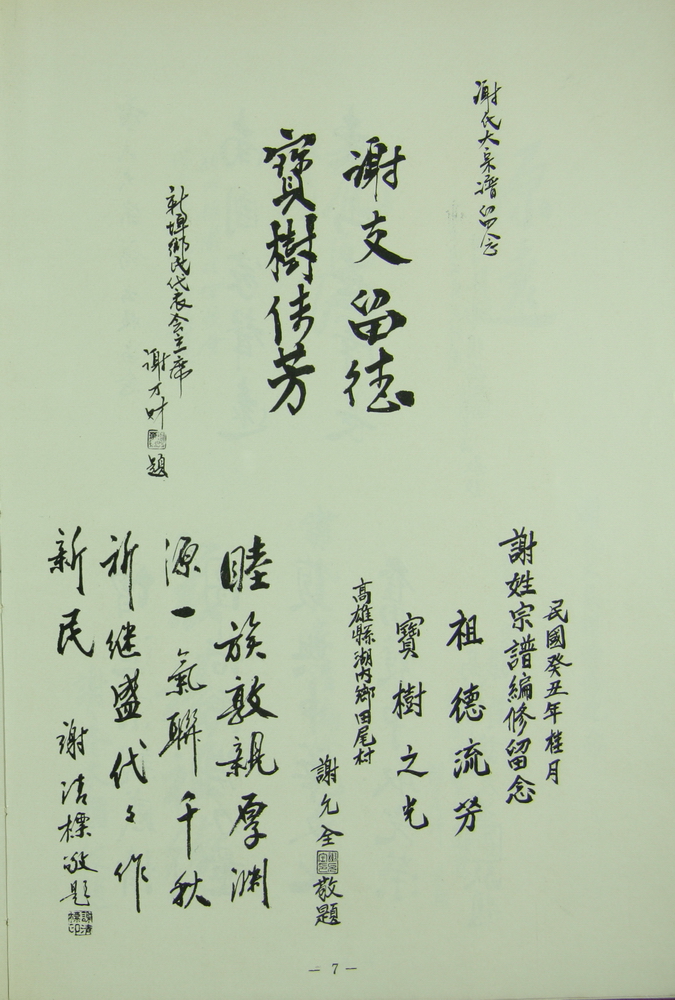 謝氏大宗譜留念
謝支留德
寶樹傳芳
新埤鄉民代表會主席
謝万財題
民國癸丑年桂月
謝姓宗譜編修留念
祖德流芳
寶樹之光
高雄縣湖內鄉田尾村
謝允全
敬題
睦族敦親厚淵
源一氣聯千秋
祈繼盛代々作
新民
謝清標敬題
謝清標印
－7－